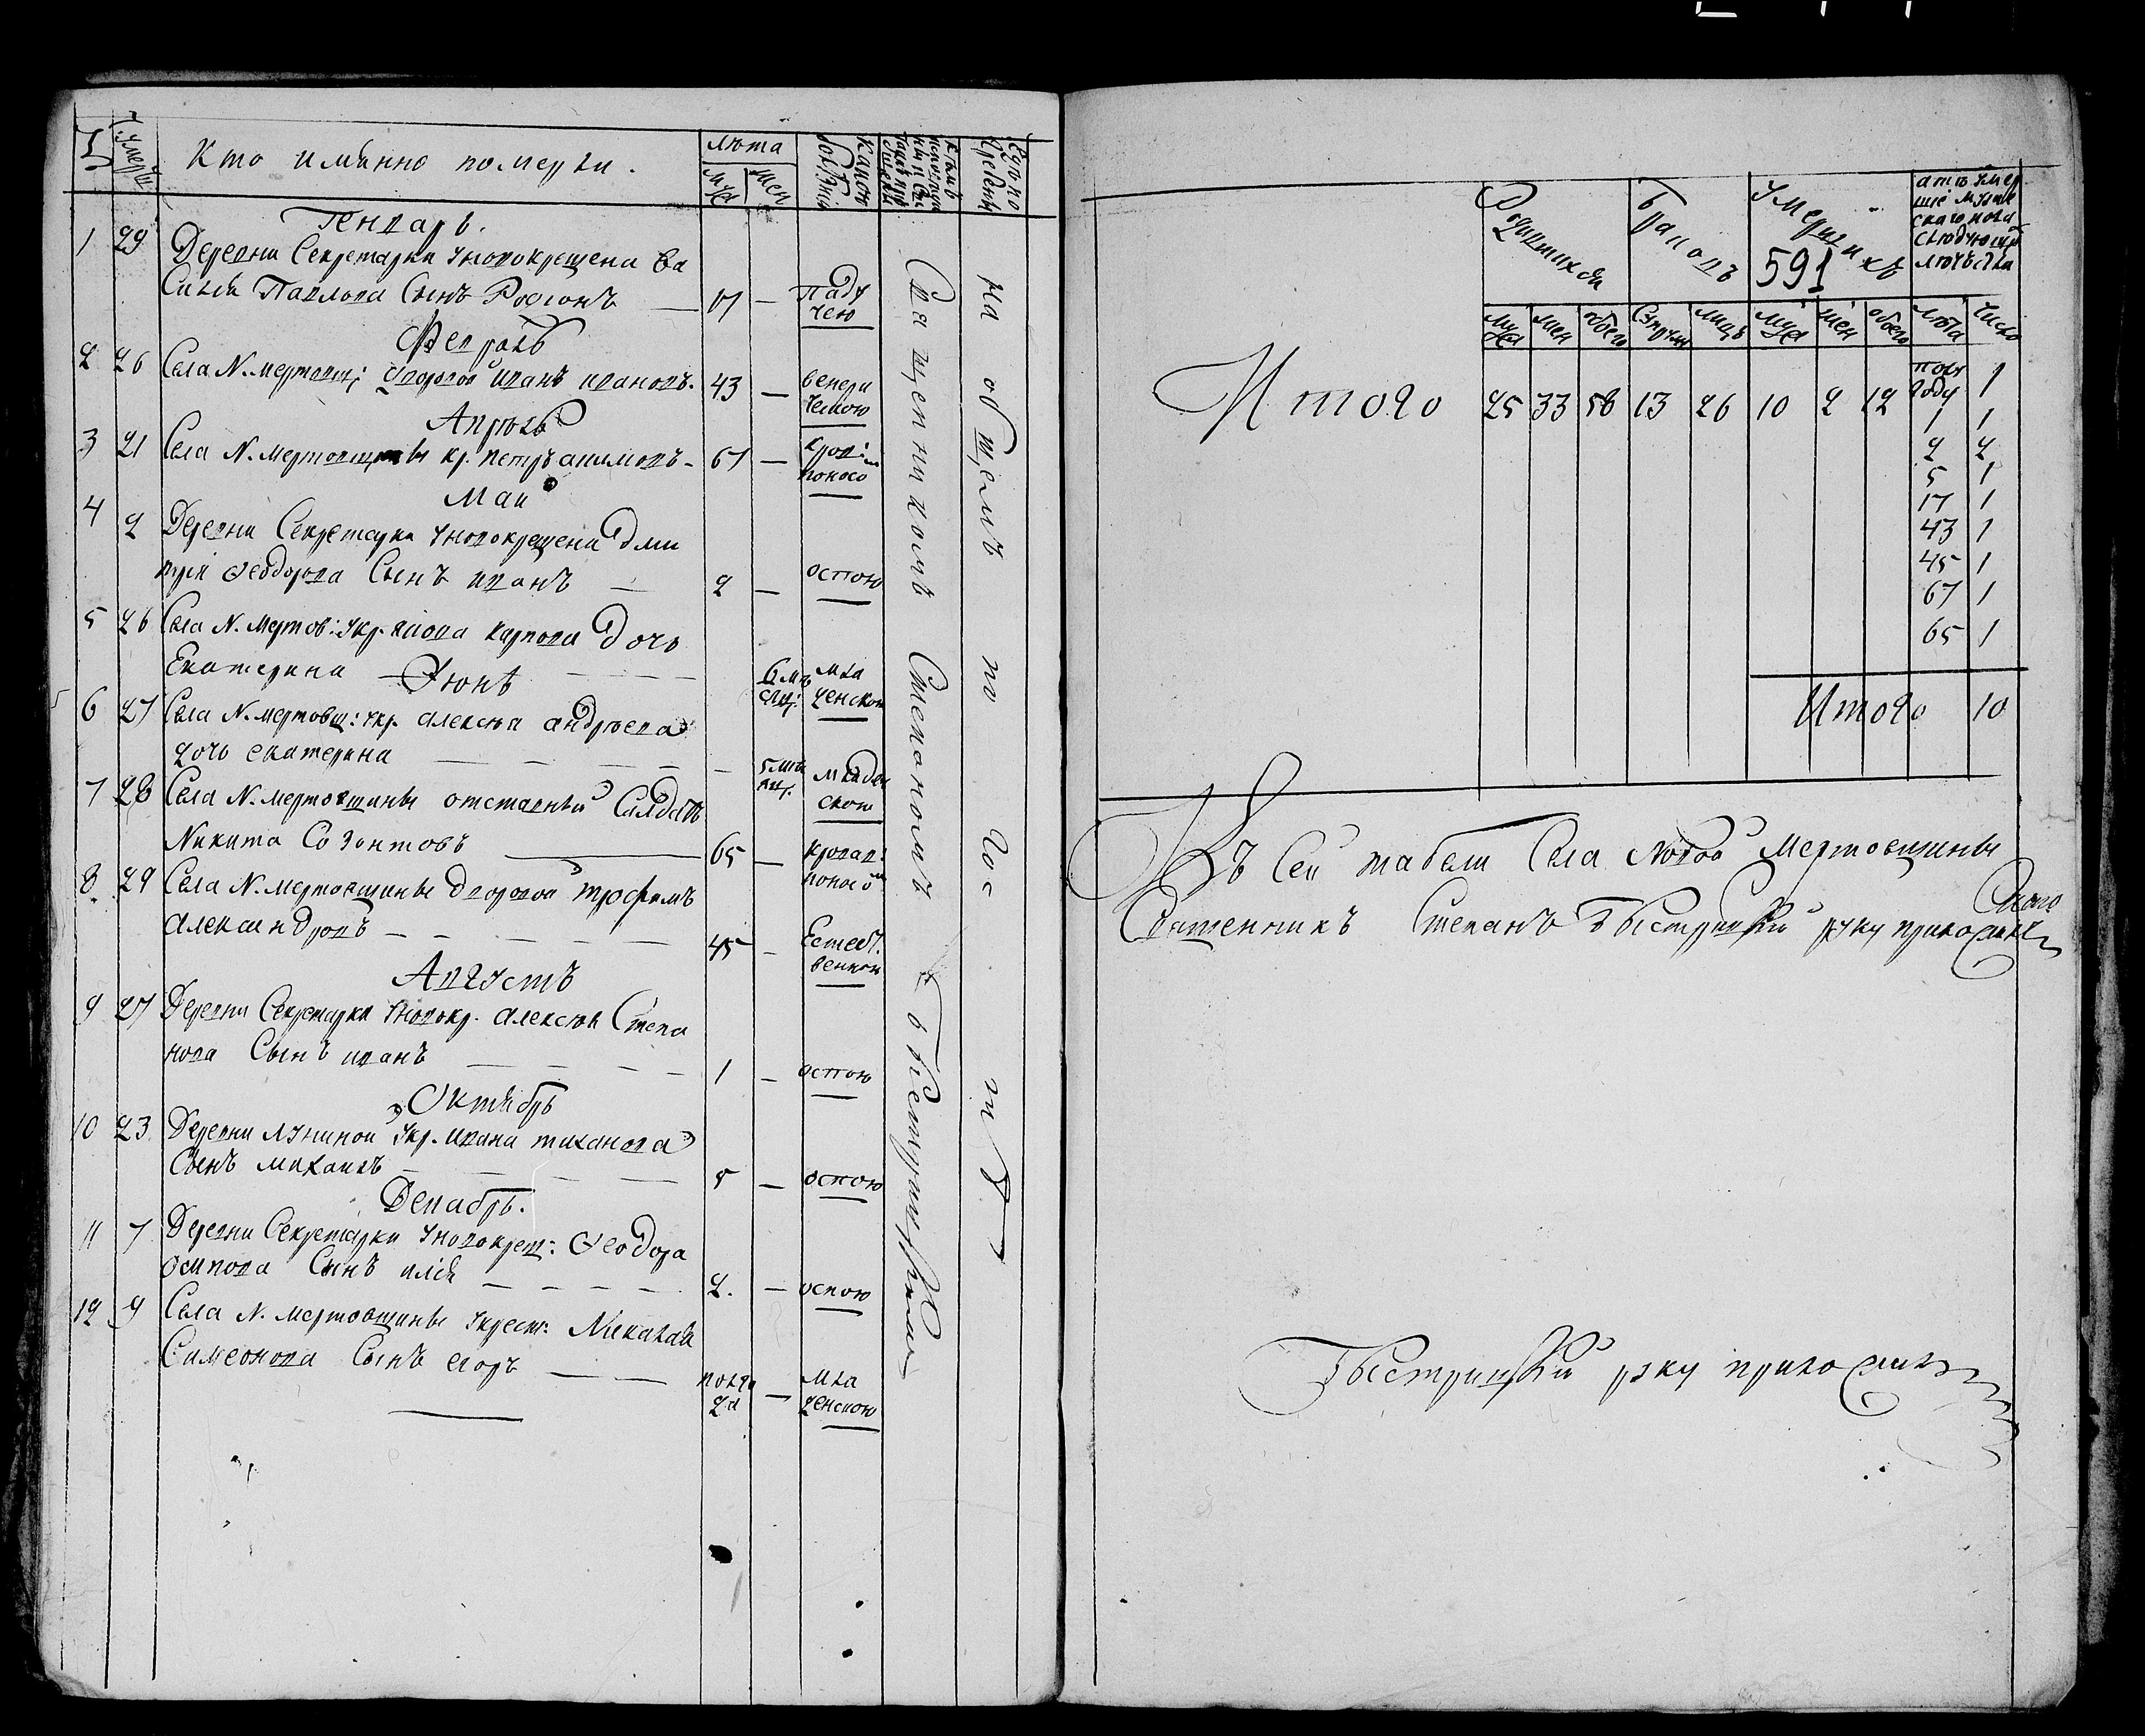 Кто именно померли.
лѣта
муж
жен
какою болѣзнiю
кѣмъ исповѣдываны и
Гдѣ погребены
Генварь.
1 29 Деревни Секретарки Уновокрещена Ва
силья Павлова Сынъ Родiонъ — 17 — паду
чею
Февраль
2 26 Села N. мертовщ: дворовой иванъ ивановъ. 43 — венери
ческою
Апрѣль
3 21 Села N. мертовщины кр. петръ акимовъ - 67 — кровав:
поносо
Маи
4 2 Деревни Секретарки Уновокрещена дми
трiя Ѳеодорова Сынъ иванъ — 2 — оспою
5 26 Села N. мертов: Укр. якова карпова дочь
Екатерина 6 мѣ
сяц: мла
денскою
Iюнь
6 27 Села N. мертовщ: укр. алексѣя андрѣева
дочь екатерина — 5 мѣ
сяц. младен
скою
7 28 Села N. мертовщины отставный Салдатъ
Никита Созонтовъ 65 — кровав:
поносо
8 29 Села N. мертовщины дворовой трофимъ
александровъ 45 - Естест.
венною
Августъ
9 27 Деревни Секретарки Уновокр. алексѣя Степа
нова Сынъ иванъ 1 — оспою
Октябрь
10 23 Деревни лунинои Укр. ивана тиханова
Сынъ михаилъ 5 — оспою
Декабрь.
11 7 Деревни Секретарки Уновокрещ: Ѳеодора
осипова Сынъ илiя 2. — оспою
12 9 Села N. мертовщины Укрест: Николая
Симеонова Сынъ егоръ полго
да — мла
денскою
Священникомъ Степаномъ Быстрицкимъ
На общемъ погостѣ
Родившихся
Браковъ
Умершихъ
591
а то умер
шiе мужес
скаго пола
слѣдующихъ
лѣтъ были
муж жен обоего Супруж лицъ муж жен обоего лѣта число
Итого 25 33 58 13 26 10 2 12
полу
году 1
1 1
2 2
5 1
17 1
43 1
45 1
67 1
65 1
Итого 10
Къ Сеи табели Села Новои Мертовщины
Священникъ Степанъ Быстрицкiи руку приложилъ
Быстрицкiи руку приложилъ